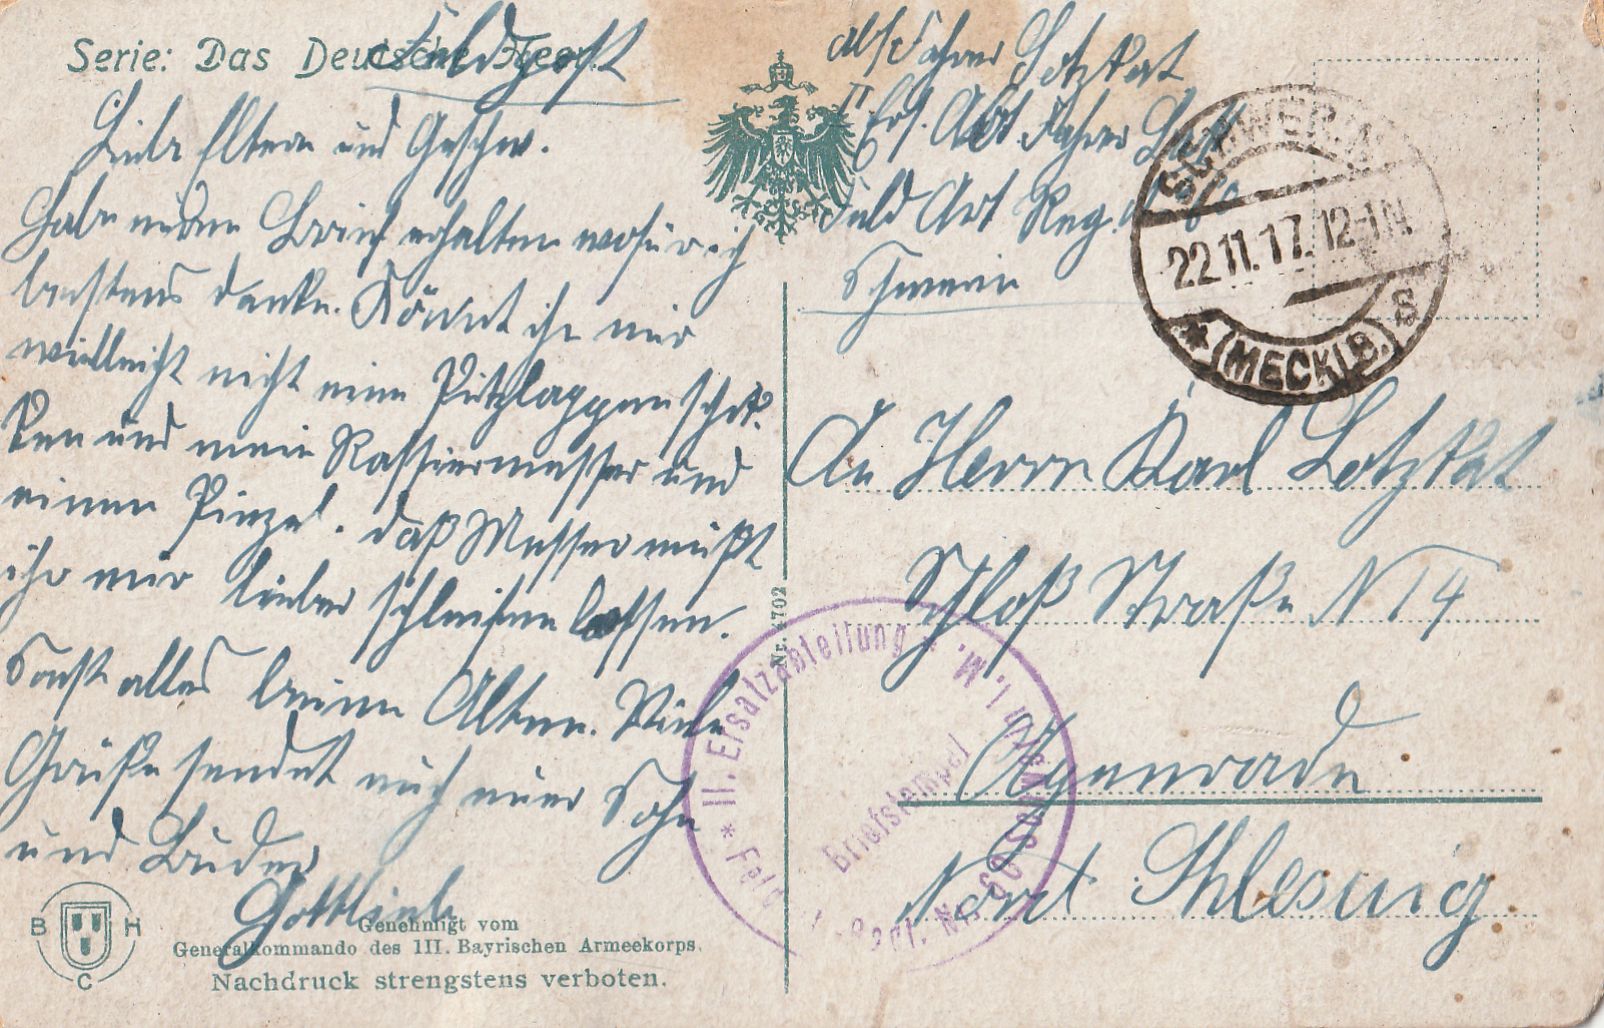 Serie: Das Deutsche Heer.
Feldpost
Liebe Eltern und Geschw.
Habe euren Brief erhalten wofür ich
bestens danke. Könnt ihr mir
vielleicht nicht eine Putzlappen schik
ken und mein Rassiermesser und
einen Pinzel. daß Messer müßt
ihr mir lieber schleifen lassen.
Sonst alles beim Alten. Viele
Grüße sendet euch euer Sohn
und Bruder
Gottlieb
B H
C
Genehmigt vom
Generalkommando des III. Bayrischen Armeekorps.
Nachdruck strengstens verboten.
Nr. 4702
abs Fahrer Lotzkat
II Ers. Abt. Fahrer
Feld Art Reg. 60
Schwerin
SCHWERIN
22.11.17. 12-1N
* (MECKLB.) S
An Herrn Karl Lotzkat
Schloß Straße N 14
Apenrade
Nort Schleswig
II. Ersatzabteilung
Schwerin i. M.
* Feld Regt. Nr. 60
Briefstempel